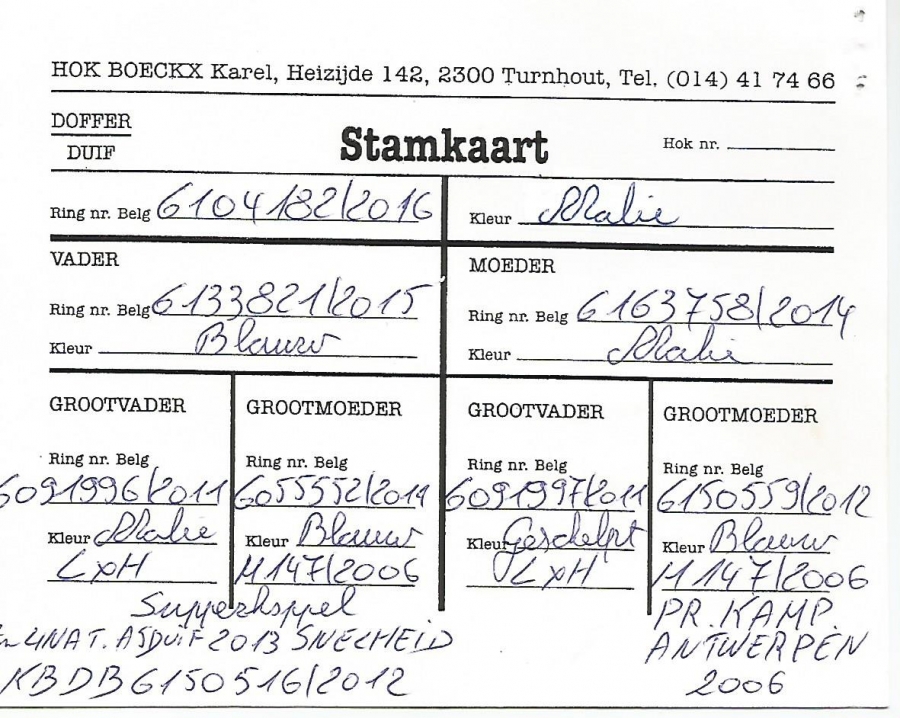 HOK BOECKX Karel, Heizijde 142, 2300 Turnhout, Tel. (014) 41 74 66
DOFFER
DUIF
Stamkaart
Hok nr.
Ring nr. Belg 6104182/2016
Kleur Malie
VADER
Ring nr. Belg 6133821/2015
Kleur Blauw
MOEDER
Ring nr. Belg 6163758/2014
Kleur Malie
GROOTVADER
Ring nr. Belg
6091996/2011
Kleur Malie
LxH
GROOTMOEDER
Ring nr. Belg
6055552/2011
Kleur Blauw
M147/2006
Supperkoppel
4NAT. ASDUIF 2013 SNELHEID
KBDB 6150516/2012
GROOTVADER
Ring nr. Belg
6091997/2011
Kleur Geschelpt
LxH
GROOTMOEDER
Ring nr. Belg
6150559/2012
Kleur Blauw
M147/2006
PR. KAMP.
ANTWERPEN
2006